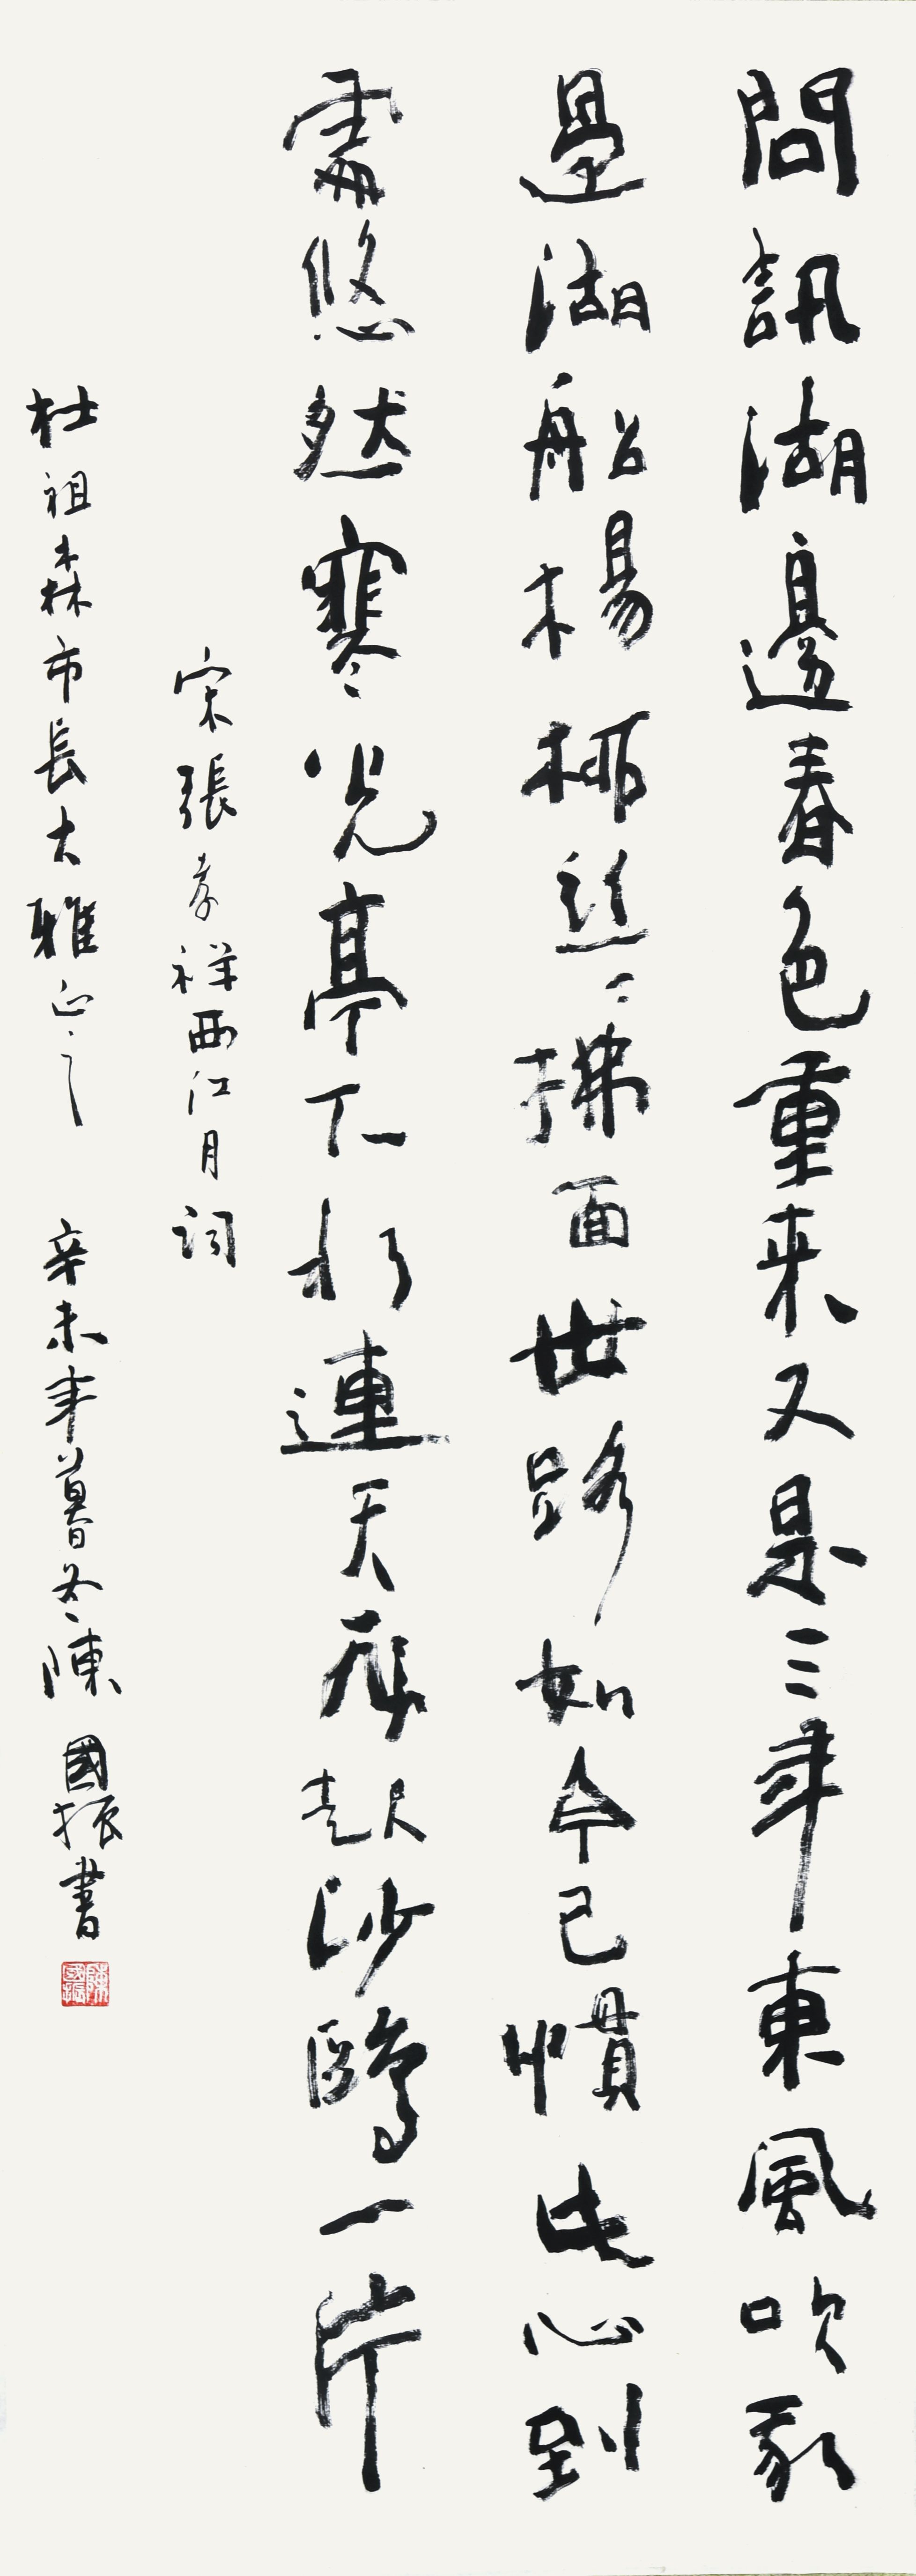 問訊湖邊春色重来又是三年東風吹我
過湖船楊柳絲〻拂面世路如今已慣此心到
處悠然寒光亭下水連天飛起沙鷗一片
宋張孝祥西江月詞
杜祖森市長大雅正之 辛未年暮冬陳國振書
陳國振